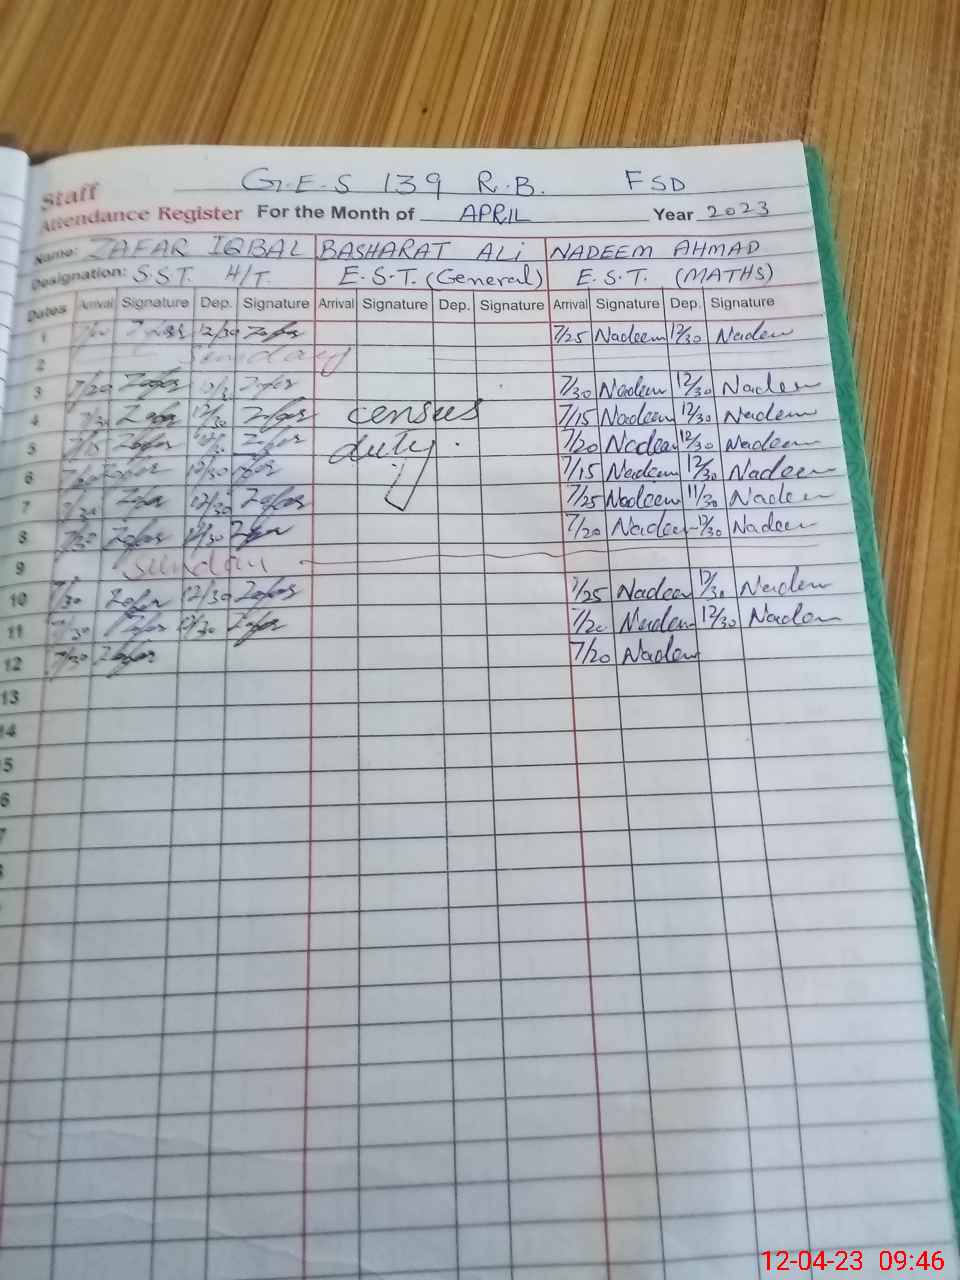 G.E.S 139 R.B. FSD
Staff
Attendance Register For the Month of APRIL Year 2023
Name: ZAFAR IQBAL BASHARAT ALi NADEEM AHMAD
Designation: S.S.T. H/T. E.S.T. (General) E.S.T. (MATHS)
Dates Arrival Signature Dep. Signature Arrival Signature Dep. Signature Arrival Signature Dep. Signature
1 12/30 Zafar 7/25 Nadeem 12/30 Nadeem
2 Sunday
3 7/20 Zafar Zafar 7/30 Nadeem 12/30 Nadeem
4 7/30 Zafar 12/30 Zafar census 7/15 Nadeem 12/30 Nadeem
5 7/15 Zafar Zafar duty. 7/20 Nadeem 12/30 Nadeem
6 Zafar 12/30 Zafar 7/15 Nadeem 12/30 Nadeem
7 7/30 Zafar 12/30 Zafar 7/25 Nadeem 11/30 Nadeem
8 7/30 Zafar 12/30 Zafar 7/20 Nadeem 12/30 Nadeem
9 Sunday
10 7/30 Zafar 12/30 Zafar 7/25 Nadeem 12/30 Nadeem
11 7/30 Zafar 12/30 Zafar 7/20 Nadeem 12/30 Nadeem
12 7/30 Zafar 7/20 Nadeem
13
4
5
6
7
12-04-23 09:46